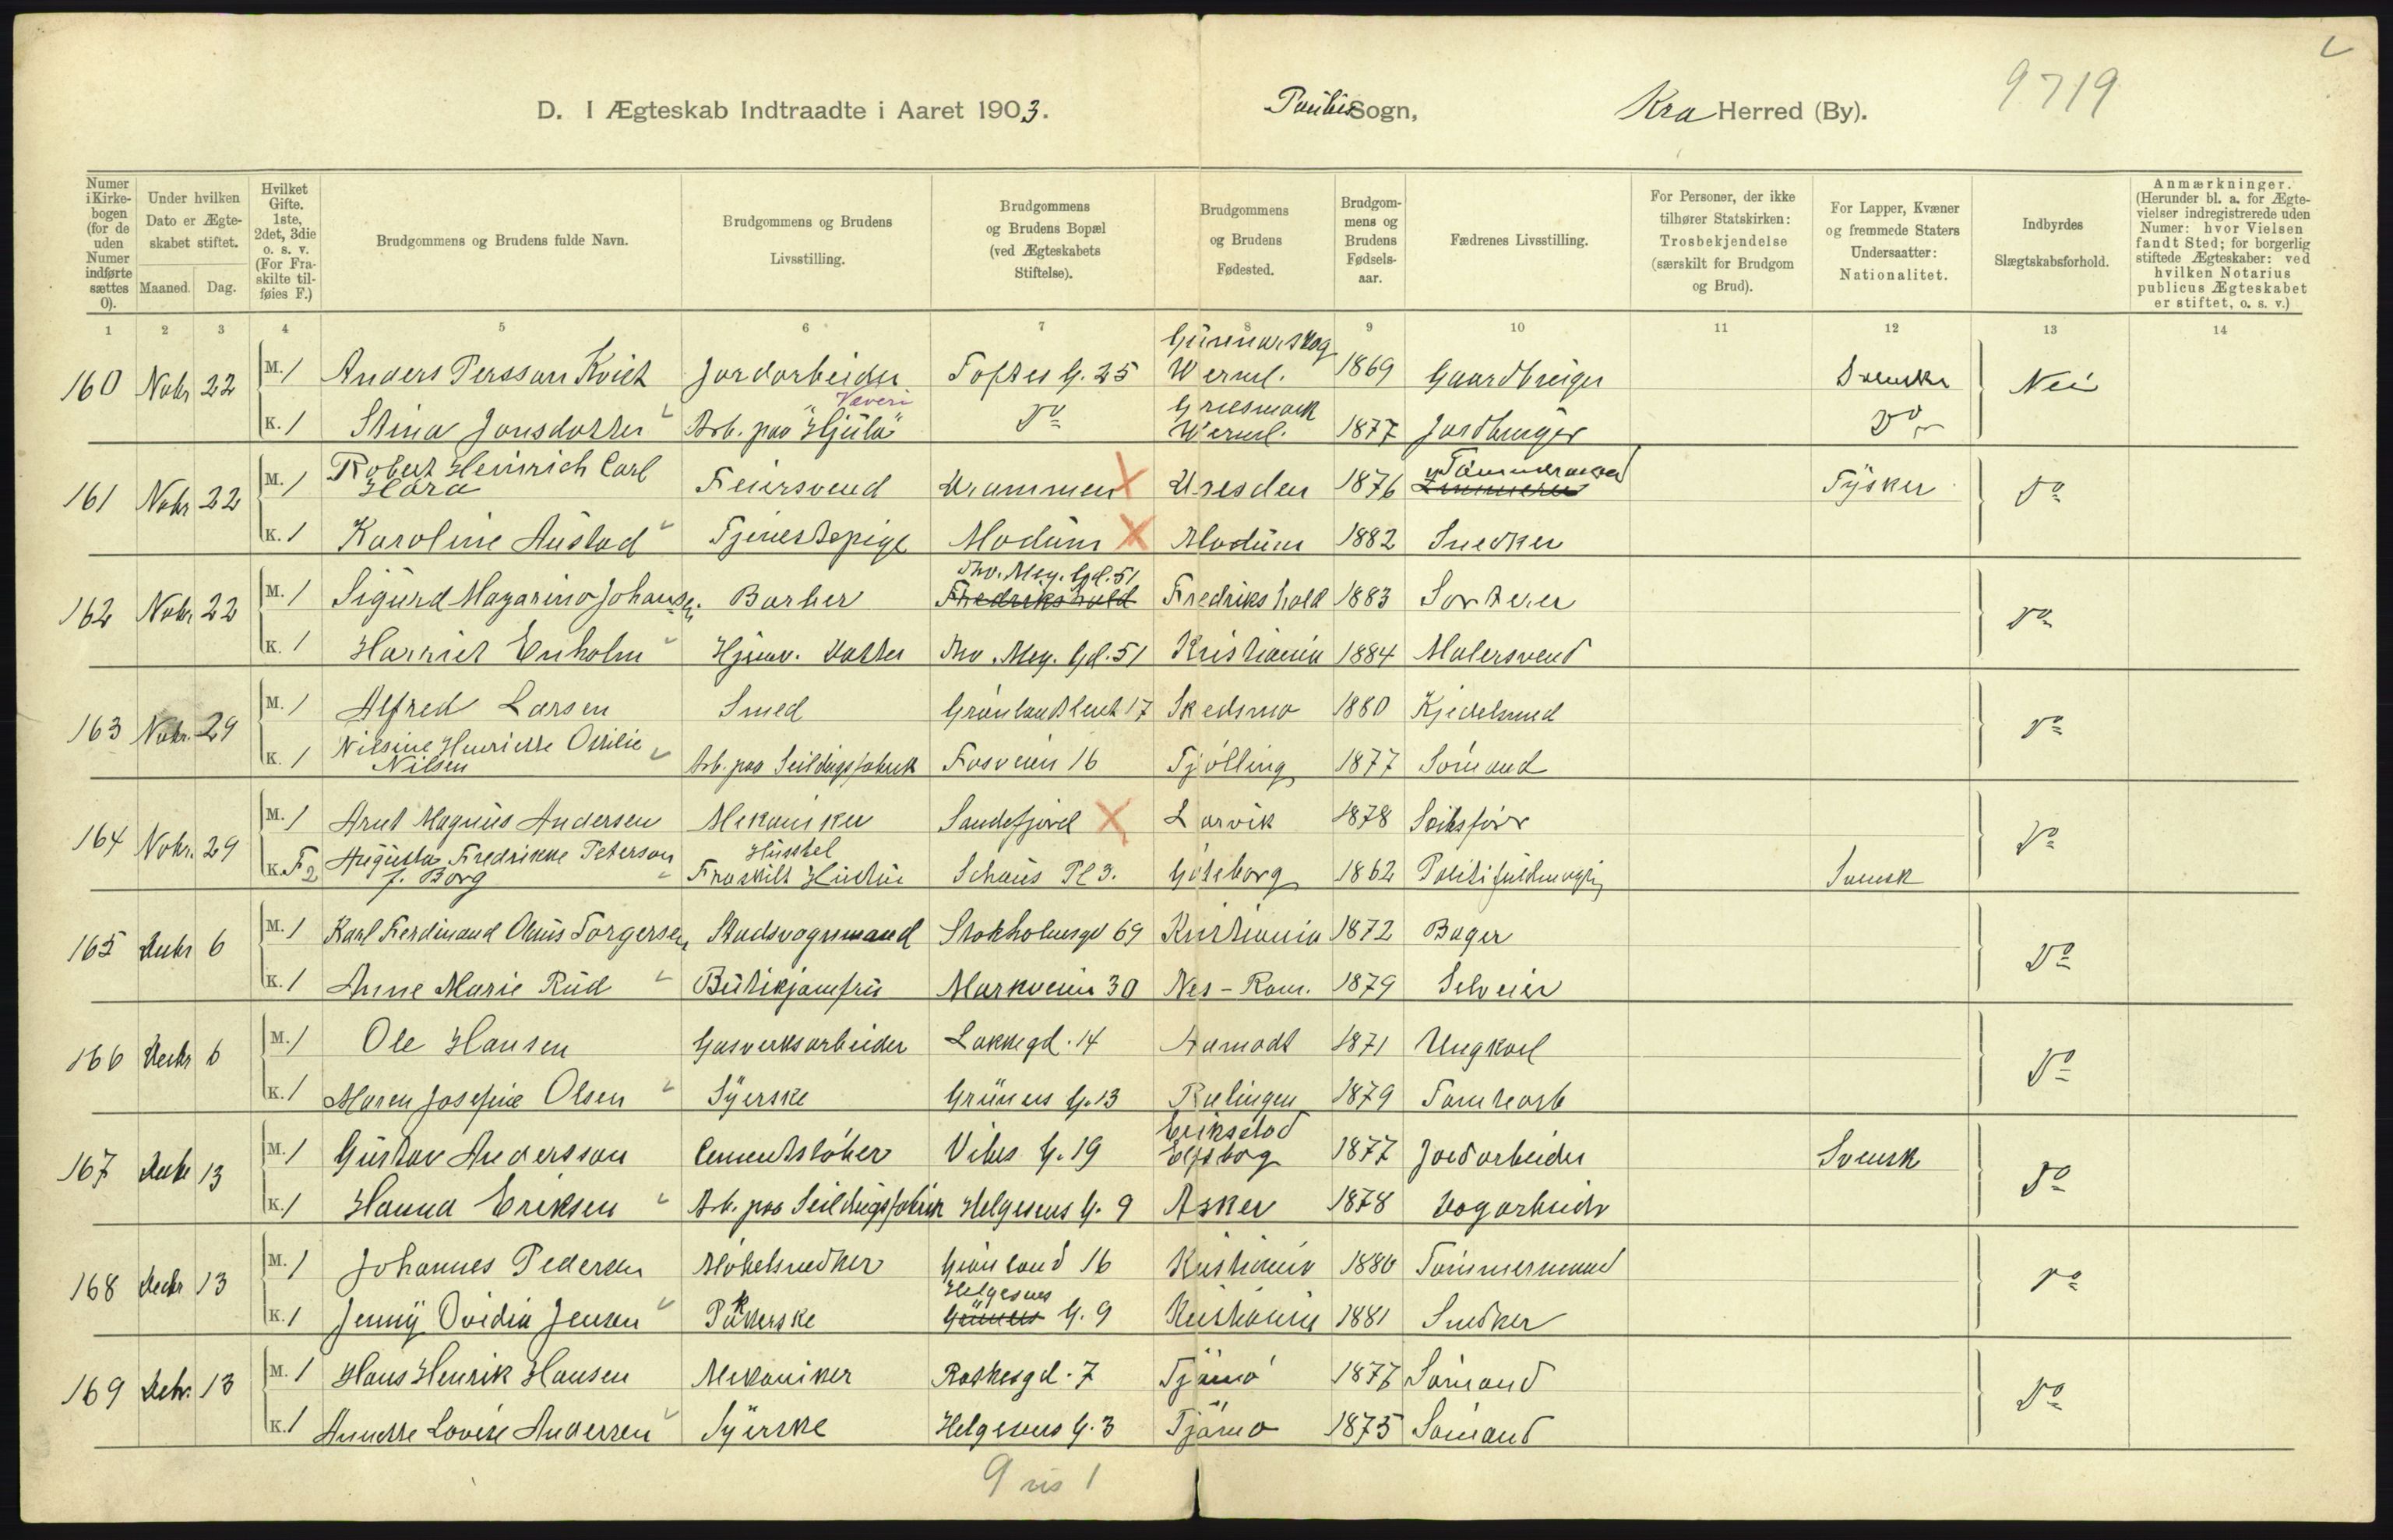 9719
D. I Ægteskab Indtraadte i Aaret 1903. Paulus Sogn, Kra Herred (By).
Numer i Kirkebogen (for de uden Numer indførte sættes 0). Under hvilken Dato er Ægteskabet stiftet. Maaned. Dag. Hvilket Gifte. 1ste, 2det, 3die o. s. v. (For Fraskilte tilføies F.) Brudgommens og Brudens fulde Navn. Brudgommens og Brudens Livsstilling. Brudgommens og Brudens Bopæl (ved Ægteskabets Stiftelse). Brudgommens og Brudens Fødested. Brudgommens og Brudens Fødselsaar. Fædrenes Livsstilling. For Personer, der ikke tilhører Statskirken: Trosbekjendelse (særskilt for Brudgom og Brud). For Lapper, Kvæner og fremmede Staters Undersaatter: Nationalitet. Indbyrdes Slægtskabsforhold. Anmærkninger. (Herunder bl. a. for Ægtevielser indregistrerede uden Numer: hvor Vielsen fandt Sted; for borgerlig stiftede Ægteskaber: ved hvilken Notarius publicus Ægteskabet er stiftet, o. s. v.)
1 2 3 4 5 6 7 8 9 10 11 12 13 14
160 Nobr 22 M. 1 Anders Persson Kvick Jordarbeider Toftes G. 25 Gunnarskog Werml. 1869 Gaardbruger Svenske Nei
K. 1 Stina Jonsdatter Arb. paa "Hjula" Væveri Do Werml. 1877 Jordbruger Do
161 Nobr 22 M. 1 Robert Heinrich Carl Hara Feiersvend Drammen X Dresden 1876 Tømmermand Tysker Do
K. 1 Karoline Austad Tjenestepige Modum X Modum 1882 Snedker
162 Nobr 22 M. 1 Sigurd Mazarino Johansen Barber Thv. Mey. Gd. 51 Fredrikshald Fredrikshald 1883 Sorterer Do
K. 1 Harriet Enholm Hjemv. Datter Thv. Mey. Gd. 51 Kristiania 1884 Malersvend
163 Nobr. 29 M. 1 Alfred Larsen Smed Grønlandsleret 17 Skedsmo 1880 Kjedelsmed Do
K. 1 Nilsine Henriette Otilie Nilsen Arb. paa Seildugsfabrik Fosveien 16 Tjølling 1877 Sømand
164 Nobr. 29 M. 1 Arnt Magnus Andersen Mekaniker Sandefjord X Larvik 1878 Skibsfør Do
K. F2 Augusta Fredrikke Peterson f. Borg Fraskilt Hustru Schous Pl 3. Göteborg 1862 Politifuldmægtig Svensk
165 Debr 6 M. 1 Karl Ferdinand Olaus Torgersen Stadsvognmand Stokholmsgd 69 Kristiania 1872 Bager Do
K. 1 Anne Marie Rud Butikjomfru Markveien 30 Nes - Rom. 1879 Selveier
166 Decbr 6 M. 1 Ole Hansen Gasverksarbeider Lakkegd. 14 Aamodt 1871 Ungkarl Do
K. 1 Maren Josefine Olsen Syerske Grüners G. 13 Rælingen 1879 Tomtearb
167 Debr 13 M. 1 Gustav Andersson Cementstøber Vibes G. 19 Elfsborg 1877 Jordarbeider Svensk Do
K. 1 Hanna Eriksen Arb. paa Seildugsfabrik Helgesens G. 9 Asker 1878 Dagarbeider
168 Decbr 13 M. 1 Johannes Pedersen Møbelsnedker Grønland 16 Kristiania 1880 Tømmermand Do
K. 1 Jenny Ovidia Jensen Pakkerske Helgesens Grüners G. 9 Kristiania 1881 Snedker
169 Debr. 13 M. 1 Hans Henrik Hansen Mekaniker Raskesgd. 7 Tjømø 1877 Sømand Do
K. 1 Annette Lovise Andersen Syerske Helgesens G. 3 Tjømø 1875 Sømand